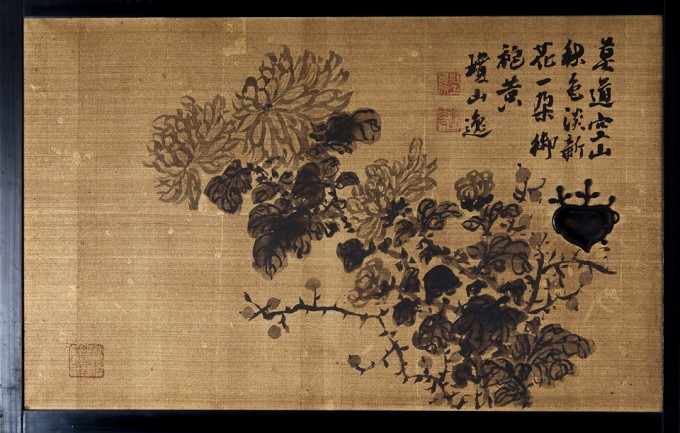 莫道空山
秋色淡新
花一朶御
袍黄
山逸